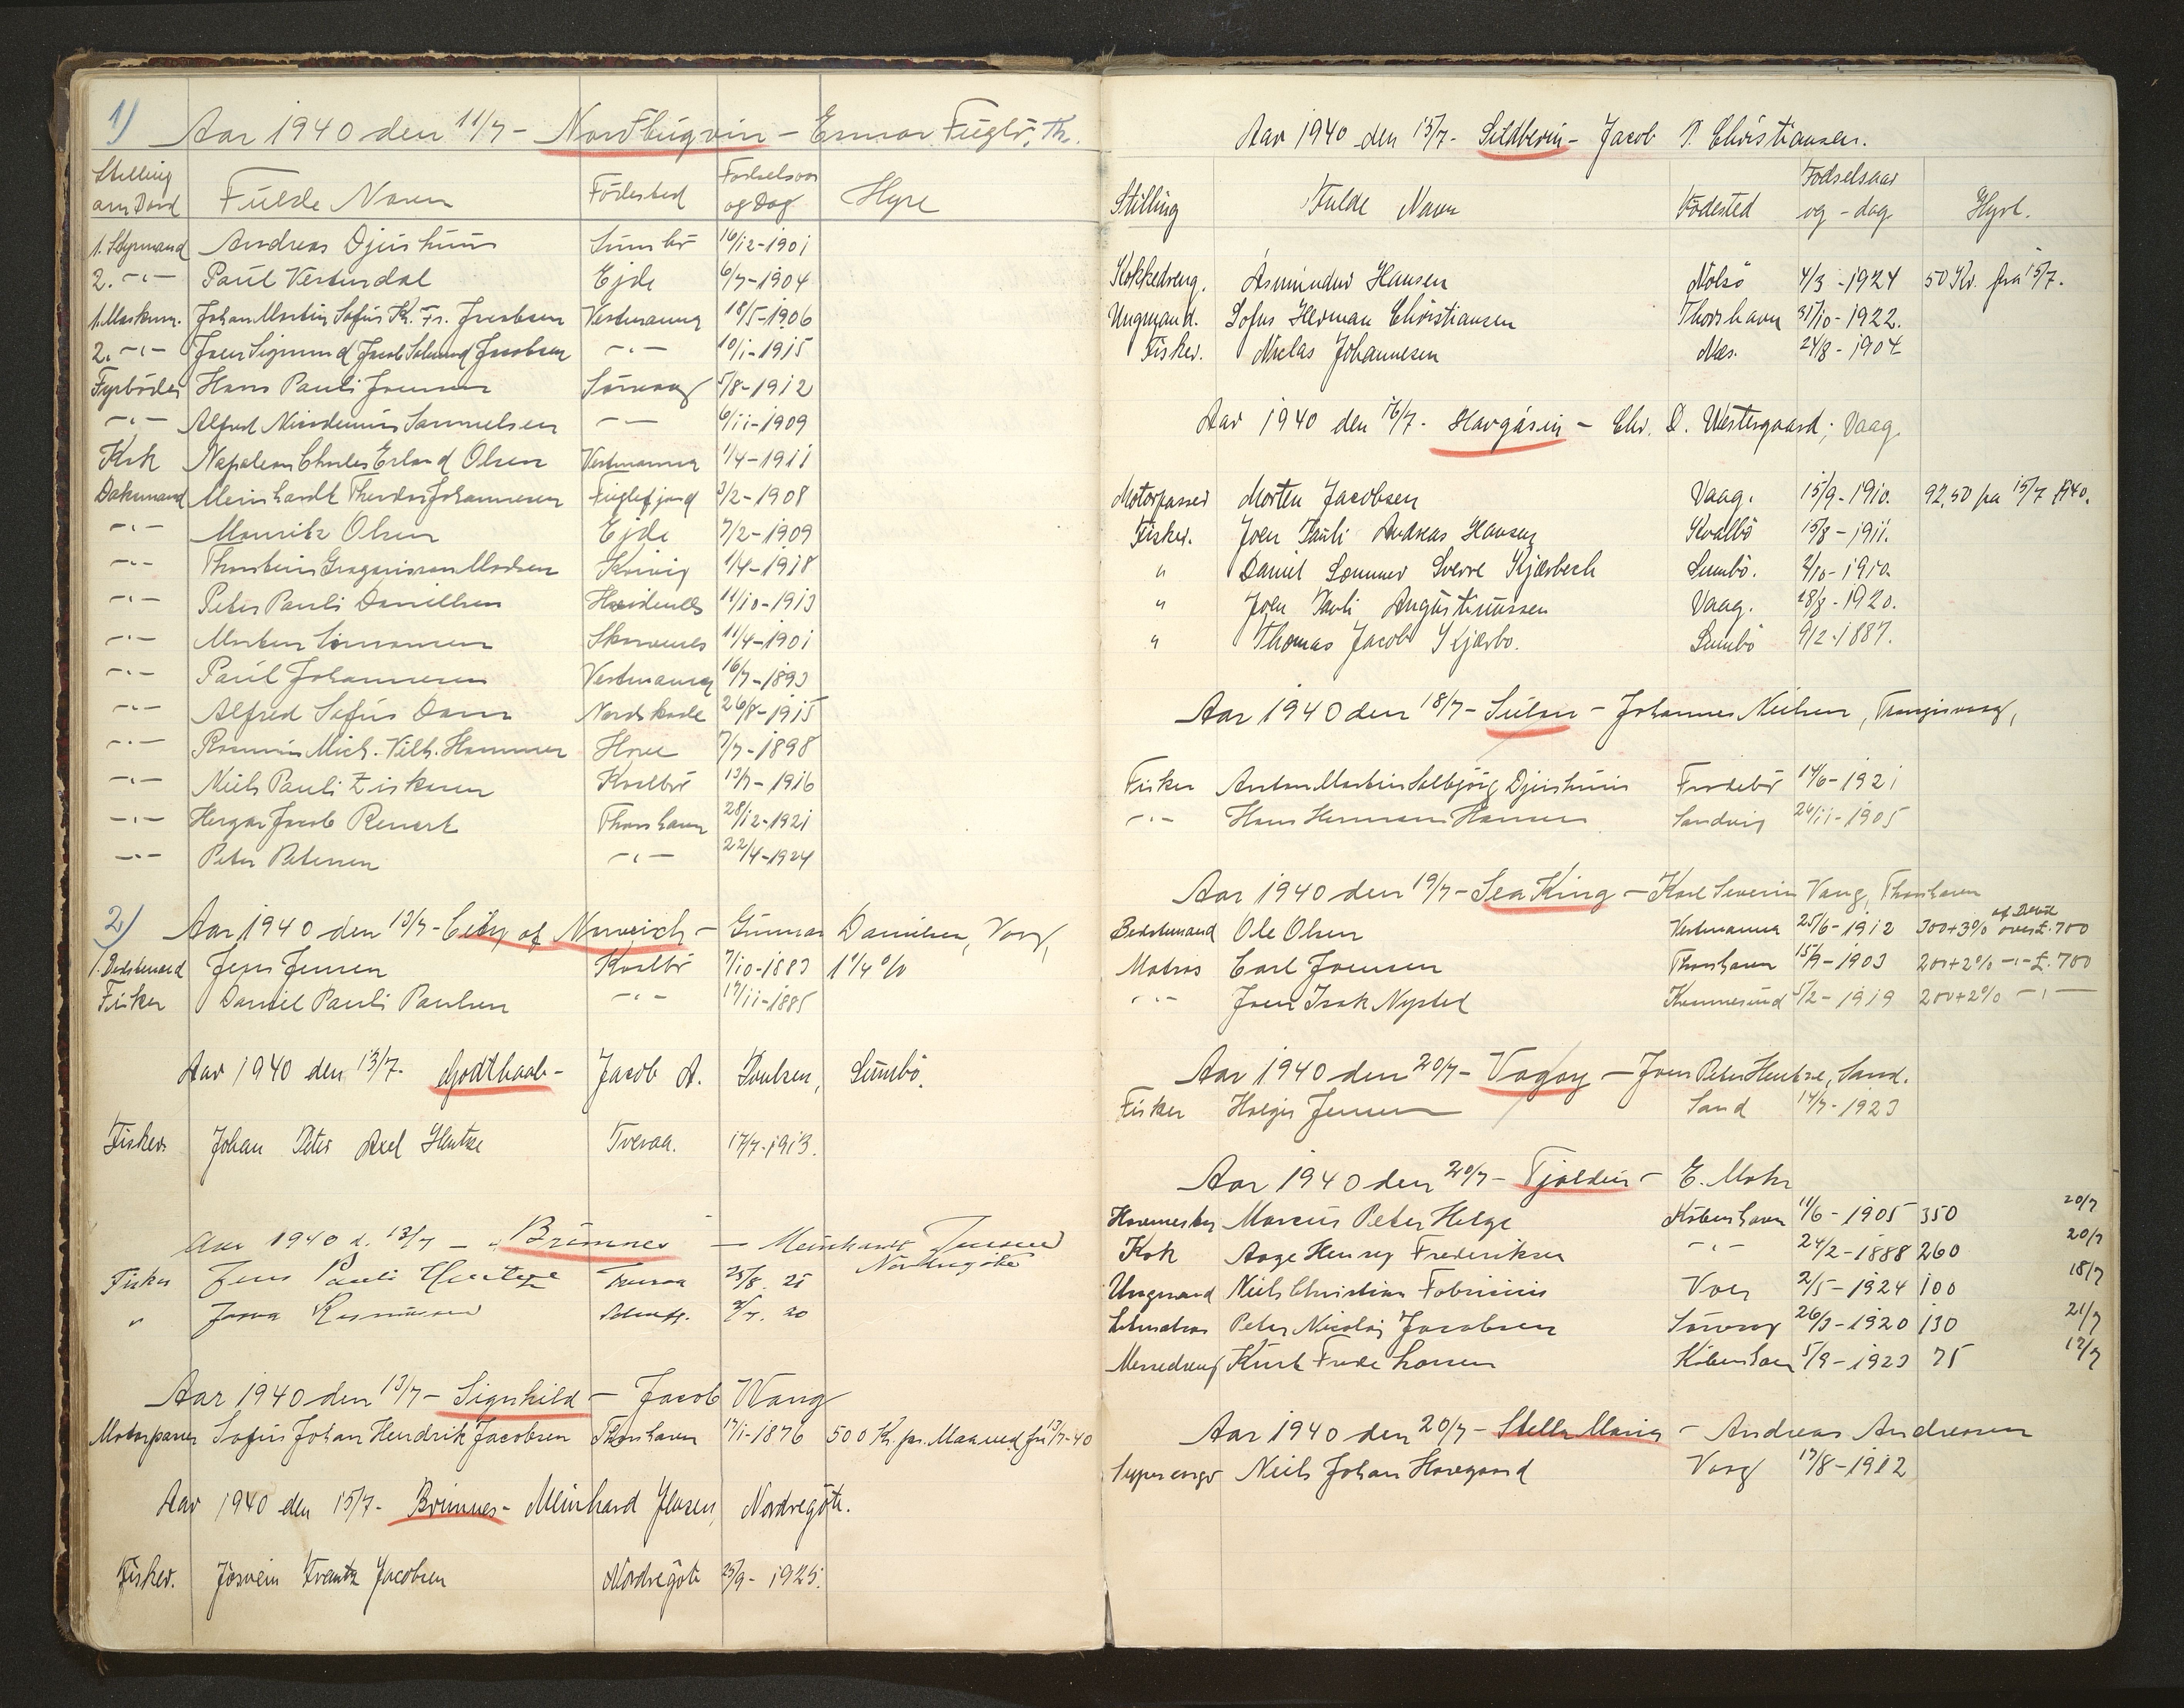 1) Aar 1940 den 11/7 - Nordbugvin - Ejnar Fuglø, Th.
Stilling om Bord Fulde Navn Födested Fødselsaar og Dag Hyre
1. Styrmand Andreas Djurhuus Sumbö 16/12-1901
2. -"- Paul Vesturdal Ejde 6/7-1904
1. Maskinm. Johan Martin Sofus K. Fr. Jacobsen Vestmanna 18/5-1906
2. -"- Joen Sigmund Jacob Jacobsen -"- 10/1-1915
Fyrböder Hans Pauli Joensen Sörvaag 5/8-1912
-"- Alfred Nicodemus Samuelsen -"- 6/11-1909
Kok Napoleon Charles Erland Olsen Vestmanna 1/4-1911
Daksmand Meinhardt Theodor Johannesen Fuglefjord 3/2-1908
-"- Mouritz Olsen Ejde 7/2-1909
-"- Thorstein Gregarisson Madsen Kvivig 1/4-1918
-"- Peter Pauli Danielsen 11/10-1913
-"- Morten Simonsen Skaanes 11/4-1901
-"- Paul Johannesen Vestmanna 16/7-1893
-"- Alfred Sofus Dam Nordskaale 26/8-1915
-"- Rasmus Mich. Vilh. Hammer Hove 7/7-1898
-"- Niels Pauli Ziskasen Kvalbö 13/7-1916
-"- Hergeir Jacob Reinert Thorshavn 28/12-1921
-"- Peter Petersen -"- 22/4-1924
2) Aar 1940 den 13/7 - City of Norwich - Gunnar Danielsen, Vaag,
1. Bedstemand Jens Jensen Kvalbö 7/10-1883 1 1/4 %
Fisker Daniel Pauli Poulsen -"- 17/11-1885
Aar 1940 den 13/7. Godthaab - Jacob A. Poulsen, Sumbö.
Fisker. Johan Peter Axel Hentze Tveraa. 17/7-1913.
Aar 1940 d. 13/7 - Brimnes - Meinhardt Jensen Nordregöte
Fisker Jens Pauli Hentze Tveraa 25/8. 25
" Jona Rasmussen 20
Aar 1940 den 13/7 - Signhild - Jacob Wang
Motorpasser Sofus Johan Hendrik Jacobsen Thorshavn 17/1-1876 500 Kr. pr. Maaned fra 13/7-40
Aar 1940 den 15/7. Brimnes - Meinhard Jensen, Nordregöte.
Fisker. Jósvein Frantz Jacobsen Nordregöte 25/9- 1925.
Aar 1940 den 15/7. Sildberin - Jacob P. Christiansen.
Stilling Fulde Navn Födested Födselsaar og - dag Hyre.
Kokkedreng. Ásmundur Hansen Nolsö 4/3 - 1924 50 Kr. fra 15/7.
Ungmand. Sofus Herman Christiansen Thorshavn 31/10 - 1922.
Fisker. Niclas Johannesen Næs. 24/8 - 1904
Aar 1940 den 16/7. Havgásin - Chr. D. Westergaard; Vaag.
Motorpasser Morten Jacobsen Vaag. 15/9-1910. 92,50 fra 15/7 1940.
Fisker. Joen Pauli Andreas Hansen Kvalbö 15/8 - 1911.
" Daniel Sommer Sverre Kjærbech Sumbö. 2/10 - 1910.
" Joen Pauli Augustinussen Vaag. 18/8 - 1920.
" Thomas Jacob Kjærbo. Sumbö 9/2-1887.
Aar 1940 den 18/7 - Sulan - Johannes Nielsen, Trangisvaag,
Fisker Anton Martin Salbjörg Djurhuus Frodebö 14/6-1921
-"- Hans Herman Hansen Sandvig 26/11-1905
Aar 1940 den 19/7 - Sea King - Karl Severin Vang, Thorshavn
Bedstemand Ole Olsen Vestmanna 25/6-1912 300+3% af Brut. over £. 700
Matros Carl Joensen Thorshavn 15/9-1903 200+2% -"- £. 700
-"- Joen Isak Nysted 5/2-1919 200+2% -"-
Aar 1940 den 20/7 - Vagoy - Joen Peter Hentze, Sand.
Fisker Holgir Jensen Sand 14/7-1923
Aar 1940 den 20/7 - Tjaldur - E. Mohr
Hovmester Marcus Peter Helge Köbenhavn 11/6-1905 350 20/7
Kok Aage Henry Frederiksen -"- 24/2-1888 260 20/7
Ungmand Niels Christian Fabricius Vaag 2/5-1924 100 18/7
Letmatros Peter Nicolaj Jacobsen Sörvaag 26/3-1920 130 21/7
Messedreng Kurt Frode Larsen Köbenhavn 5/9-1923 75 17/7
Aar 1940 den 20/7 - Stella Maria - Andreas Andreasen
Niels Johan Hovgaard Vaag 17/8-1912